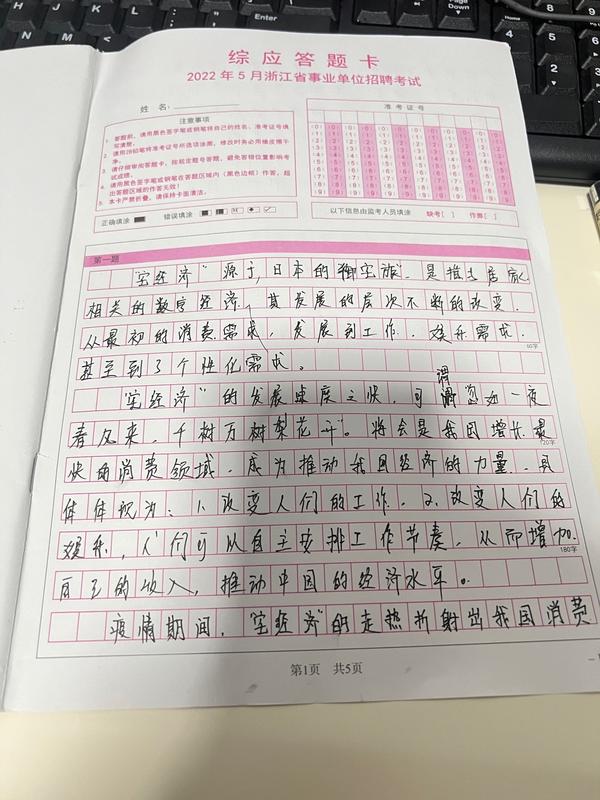 Enter
综应答题卡
2022年5月浙江省事业单位招聘考试
姓名:
注意事项
1. 答题前,请用黑色签字笔或钢笔将自己的姓名、准考证号填写清楚。
2. 请用2B铅笔将准考证号所选项涂黑,修改时务必用橡皮擦干净。
3. 请仔细审阅答题卡,按规定题号答题,避免答错位置影响考试成绩。
4. 请用黑色签字笔或钢笔在答题区域内(黑色边框)作答,超出答题区域的作答无效!
5. 本卡严禁折叠,请保持卡面清洁。
正确填涂 错误填涂
准考证号
以下信息由监考人员填涂 缺考[ ] 作弊[ ]
第一题
"宅经济"源于日本的"御宅族",是指土居家
相关的数字经济,其发展的层次不断的改变,
从最初的消费需求,发展到工作、娱乐需求,
60字
甚至到了个性化需求。
"宅经济"的发展速度之快,可谓忽如一夜
春风来,千树万树梨花开"。将会是我国增长最
120字
快的消费领域,成为推动我国经济的力量,具
体体现为:1、改变人们的工作。2、改变人们的
娱乐,人们可以自主安排工作节奏,从而增加
180字
自己的收入,推动中国的经济水平。
疫情期间,"宅经济"的走热折射出我国消费
第1页 共5页